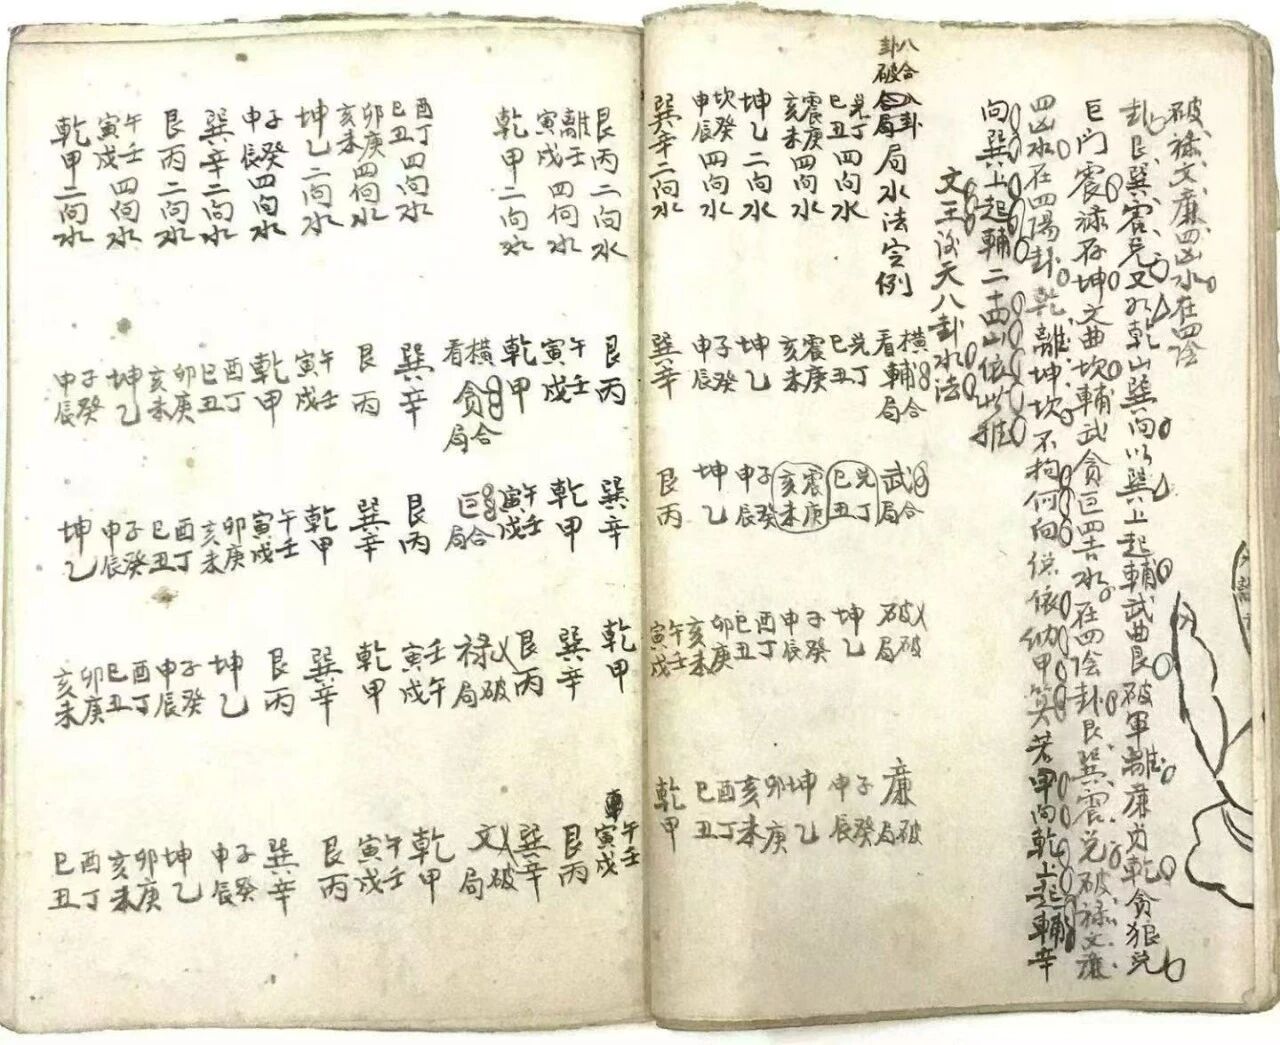 破祿文廉四凶水在四陰
卦艮巽震兌又如乾山巽向以巽上起輔武曲艮破軍離廉貞乾貪狼兌
巨門震祿存坤文曲坎輔武貪巨四吉水在四陰卦艮巽震兌破祿文廉
四凶水在四陽卦乾離坤坎不拘何向俱依納甲算若甲向乾上起輔辛
向巽上起輔二十四山依此推
文王後天八卦水法
八合八卦
卦破合局局水法定例
兌丁巳丑四向水
震庚亥未四向水
坤乙二向水
坎癸申辰四向水
巽辛二向水
橫合看輔局
兌丁巳丑
震庚亥未
坤乙
子癸申辰
巽辛
合武局
兌丁巳丑
震庚亥未
子癸申辰
坤乙
艮丙
破破局
坤乙
子癸申辰
酉丁巳丑
卯庚亥未
午壬寅戌
廉破局
子癸申辰
坤乙
卯庚亥未
酉丁巳丑
乾甲
艮丙二向水
離壬寅戌四向水
乾甲二向水
酉丁巳丑四向水
卯庚亥未四向水
坤乙二向水
子癸申辰四向水
巽辛二向水
艮丙二向水
午壬寅戌四向水
乾甲二向水
艮丙
午壬寅戌
乾甲
橫合看貪局
巽辛
艮丙
午寅戌壬
乾甲
酉丁巳丑
卯庚亥未
坤乙
子癸申辰
巽辛
乾甲
午壬寅戌
合巨局
艮丙
巽辛
乾甲
午壬寅戌
卯庚亥未
酉丁巳丑
子癸申辰
坤乙
乾甲
巽辛
艮丙
破祿局
壬午寅戌
乾甲
巽辛
艮丙
坤乙
子癸申辰
酉丁巳丑
卯庚亥未
午壬寅戌
艮丙
巽辛
破文局
乾甲
午壬寅戌
艮丙
巽辛
子癸申辰
坤乙
卯庚亥未
酉丁巳丑